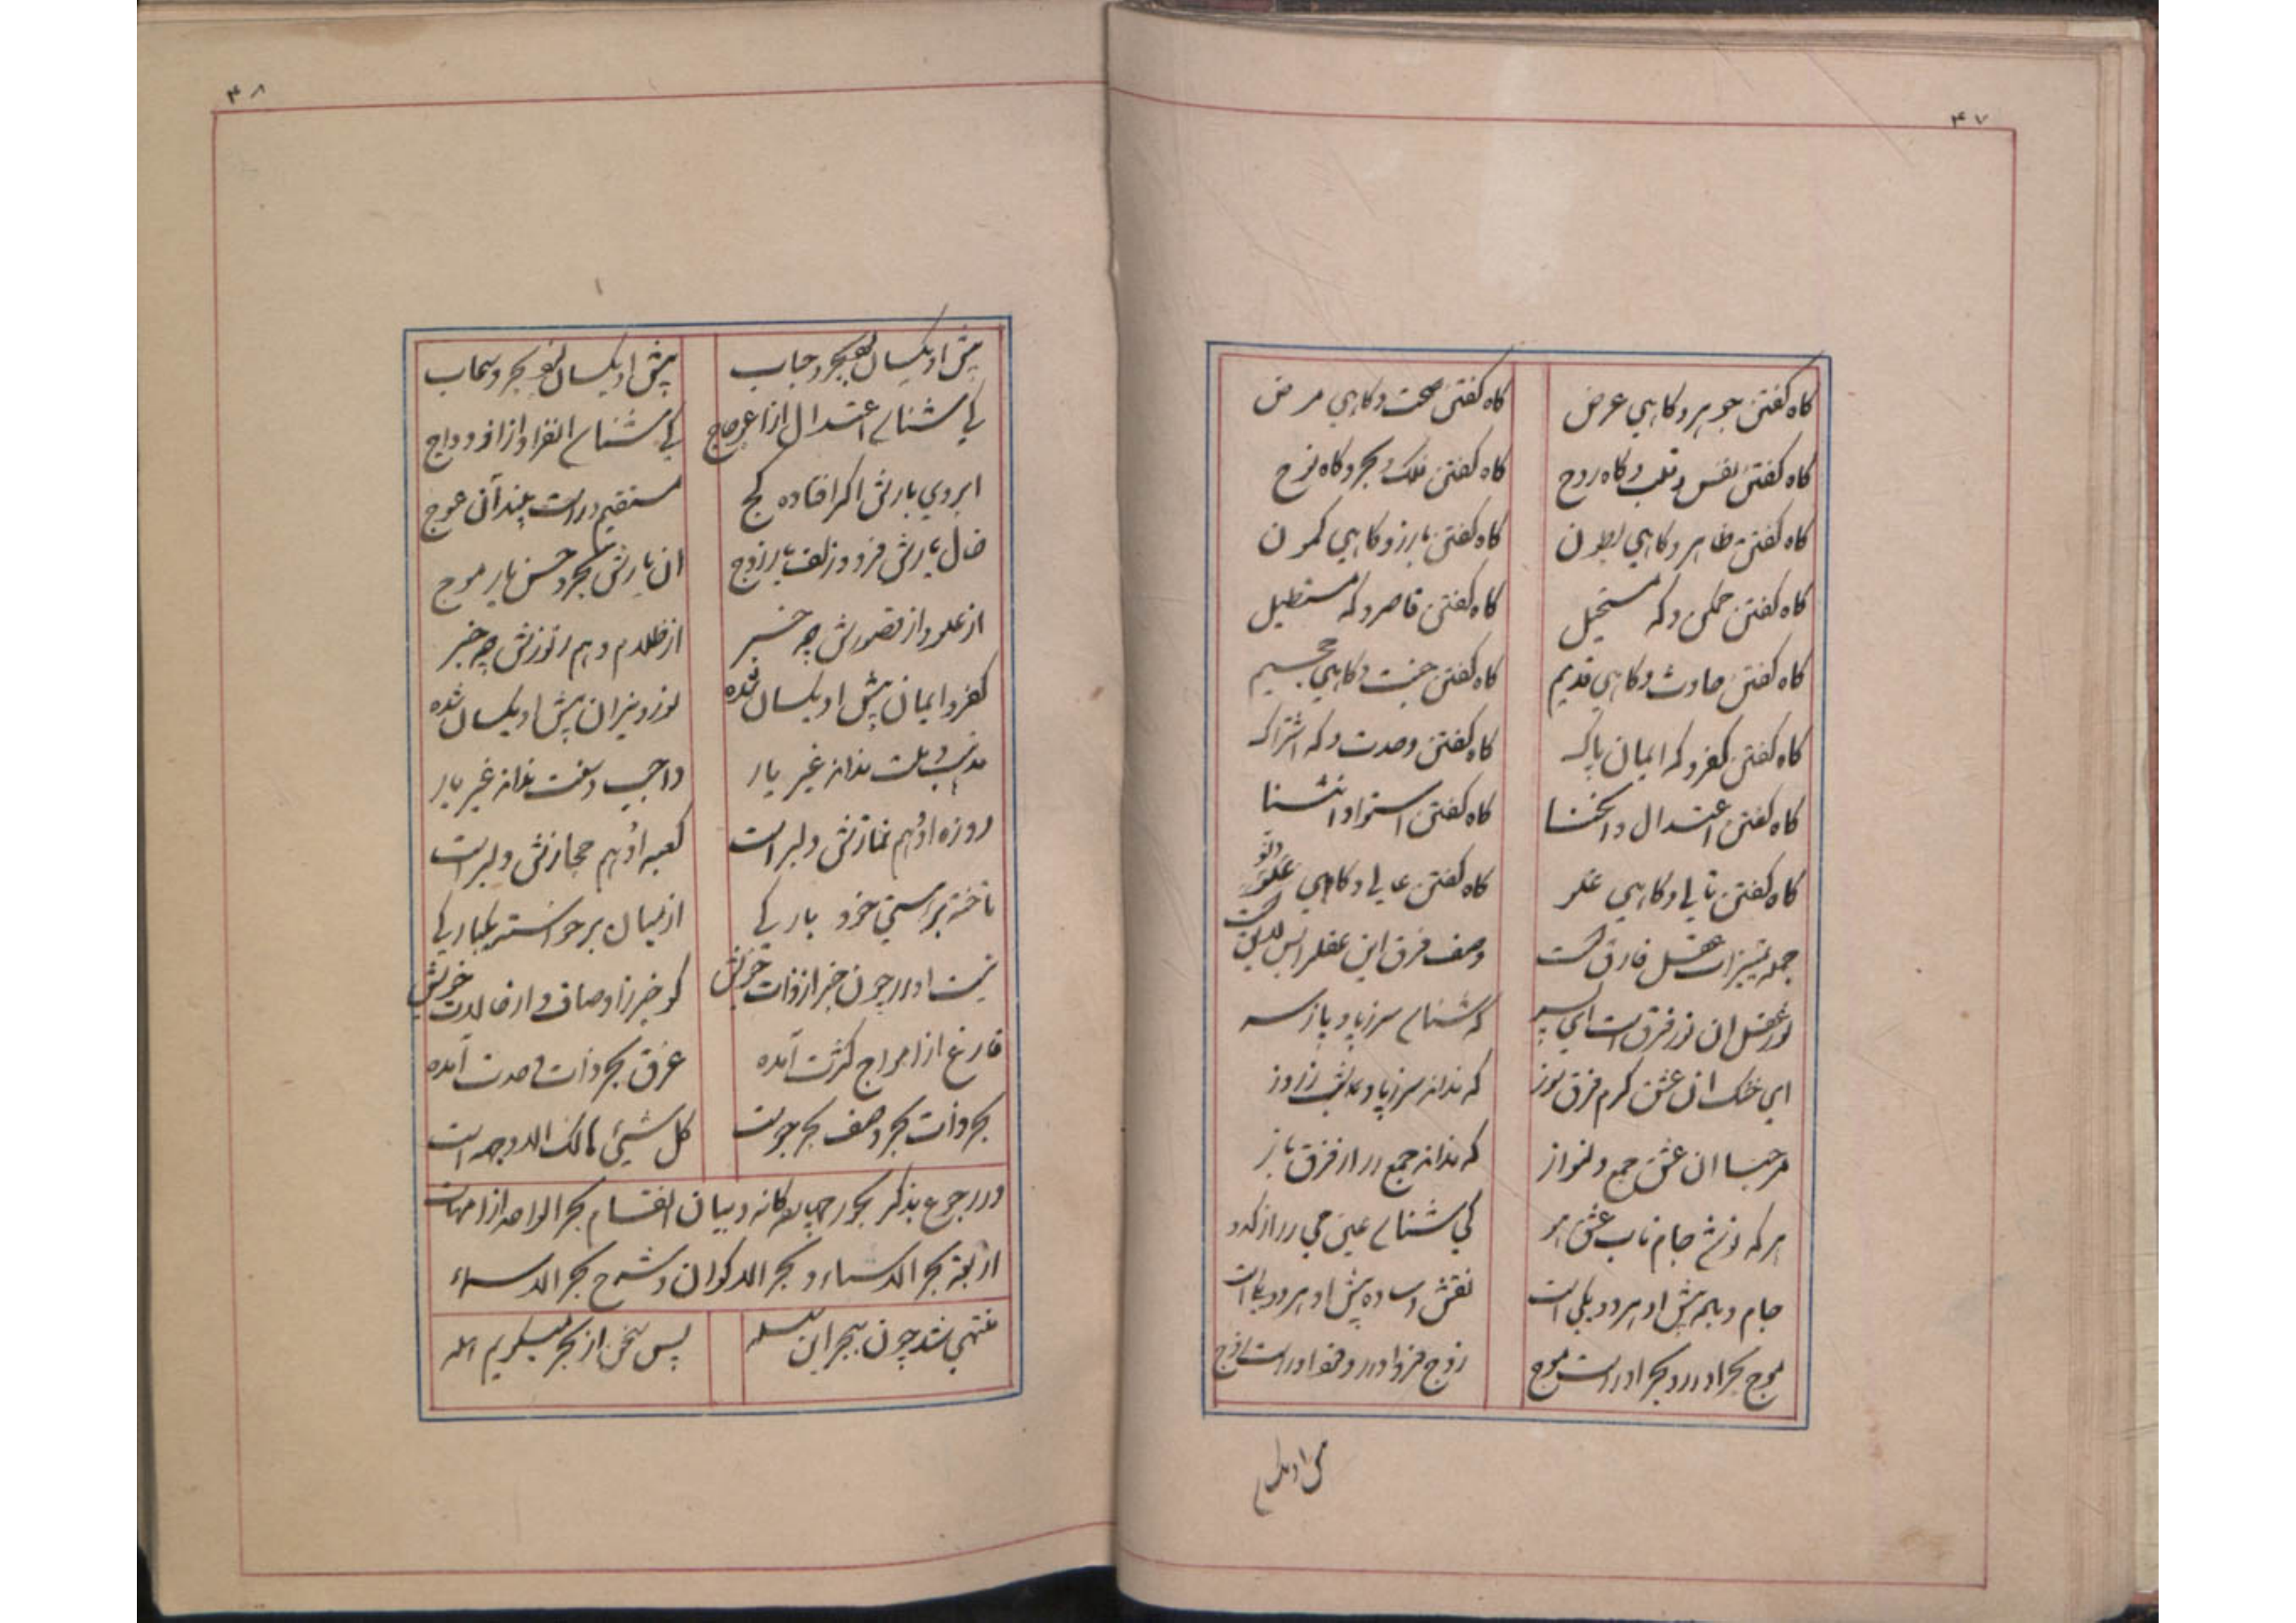 ۴۷
کاه کفتن جوهر و کاهی عرض کاه کفتن صحت و کاهی مرض
کاه کفتن نفس و قلب و کاه روح کاه کفتن فلک و بحر و کاه نوح
کاه کفتن ظاهر و کاهی بطون کاه کفتن بارز و کاهی کمون
کاه کفتن ممکن و که مستحیل کاه کفتن قاصر و که مستطیل
کاه کفتن حادث و کاهی قدیم کاه کفتن جنت و کاهی جحیم
کاه کفتن کفر و که ایمان پاک کاه کفتن وحدت و که اشتراک
کاه کفتن اعتدال و انحنا کاه کفتن استوا و انثنا
کاه کفتن تالی و کاهی کاه کفتن عالی و کاهی علو
جمله تمییزات عقل فارق است وصف فرق این عقل را بس لایق است
نور عقل ان نور فرق است ای پسر که شناسد سر ز پا و پا ز سر
ای خنک ان عشق کرم فرق سوز که نداند سر ز پا و شب ز روز
مرحبا ان عشق جمع دلنواز که نداند جمع را از فرق باز
هر که نوشد جام ناب عشق هو کی شناسد عین می را از کدو
جام و پیش او هر دو یکی است نقش و ساده پیش او هر دو یکی است
موج بحر او را و بحر او راست موج زوج فرد او را و فرد او راست زوج
۴۸
پیش او یکسان بود بحر و حباب پیش او یکسان بود بحر و سحاب
کی شناسد اعتدال از اعوجاج کی شناسد انفراد از ازدواج
ابروی یارش اکر افتاده کج مستقیم و راست بیند آن عوج
خال یارش فرد و زلف یار زوج ان یارش بحر و حسن یار موج
از علو و از قصورش چه خبر از ظلام و هم ز نورش چه خبر
کفر و ایمان پیش او یکسان شده نور و نیران پیش او یکسان شده
مذهب و ملت نداند غیر یار واجب و سنت نداند غیر یار
روزه او هم نمازش دلبر است کعبه او هم حجازش دلبر است
تاخته بر هستی خود بارکی از میان برخواسته یکبارکی
نیست او را چون خبر از ذات خویش کو خبر ز اوصاف و از حالات خویش
فارغ از امواج کثرت آمده غرق بحر ذات وحدت آمده
بحر ذات بحر وصف بحر جوست کل شیئ هالک الا وجه اوست
در رجوع بذکر بحور چهارکانه و بیان انقسام بحر الواحد از امهات
اربعه بحر الاسماء و بحر الاکوان و شرح بحر الاسماء
منتهی شد چون ببحر این سلسله پس سخن از بحر میکویم هله